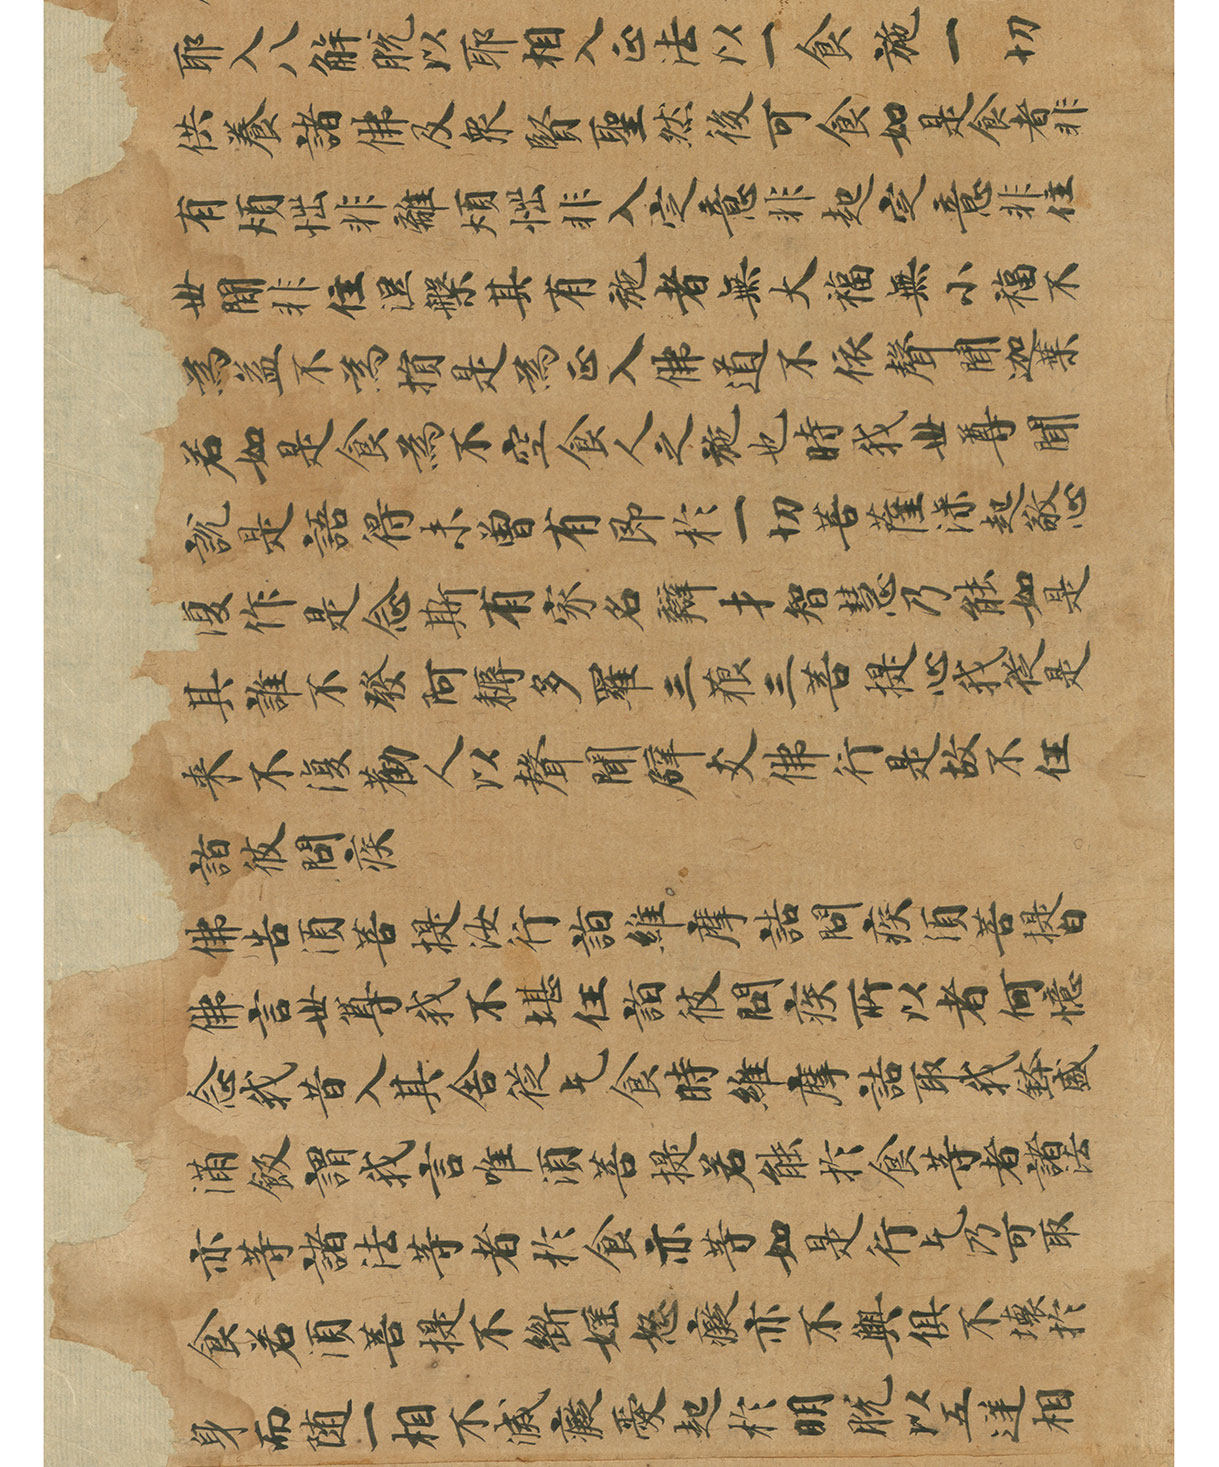 耶入八解脫以耶相入正法以一食施一切
供養諸佛及眾賢聖然後可食如是食者非
有煩惱非離煩惱非入定意非起定意非住
世間非住涅槃其有施者無大福無小福不
為益不為損是為正入佛道不依聲聞迦葉
若如是食為不空食人之施也時我世尊聞
說是語得未曾有即於一切菩薩深起敬心
復作是念斯有家名辯才智慧乃能如是
其誰不發阿耨多羅三藐三菩提心我從是
来不復勸人以聲聞辟支佛行是故不任
詣彼問疾
佛告須菩提汝行詣維摩詰問疾須菩提白
佛言世尊我不堪任詣彼問疾所以者何憶
念我昔入其舍從乞食時維摩詰取我鉢盛
滿飯謂我言唯須菩提若能於食等者諸法
亦等諸法等者於食亦等如是行乞乃可取
食若須菩提不斷婬怒癡亦不與俱不壞於
身而隨一相不滅癡愛起於明脫以五逆相